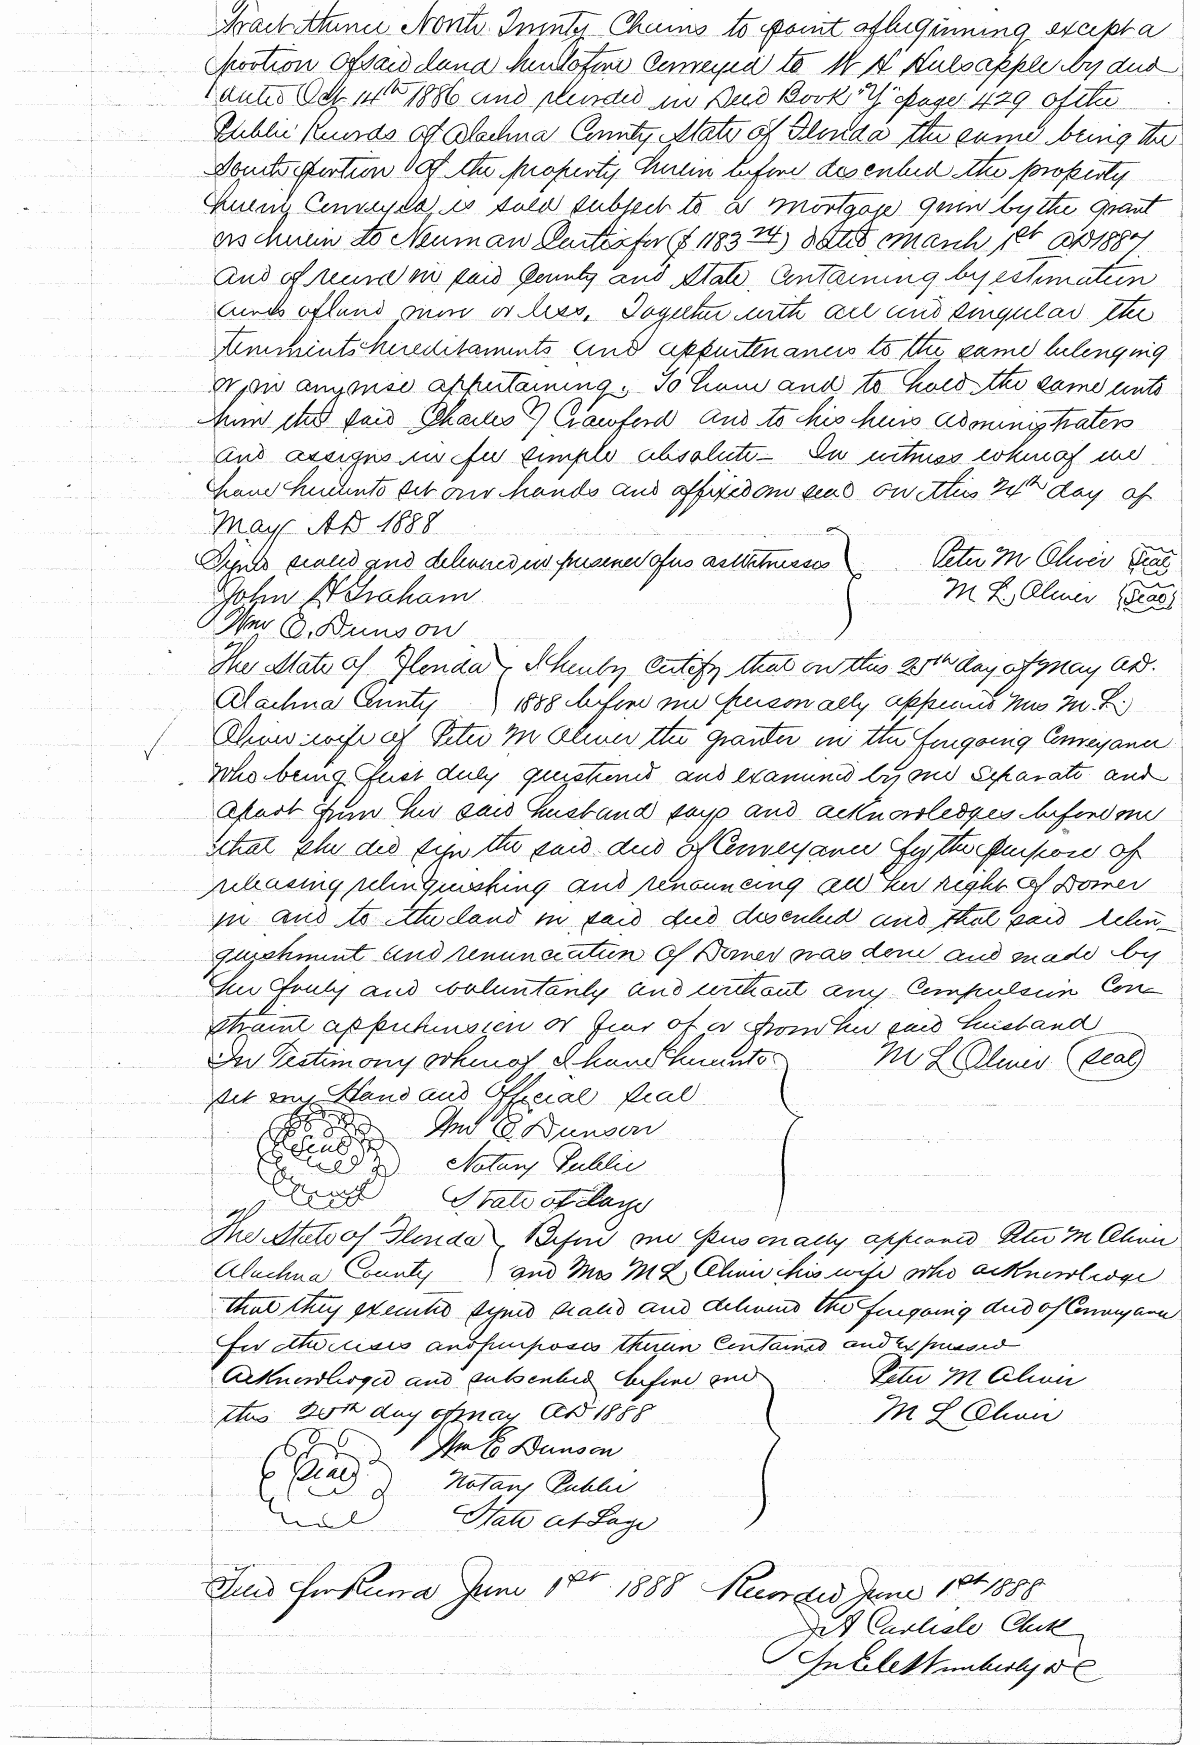 Tract thence North Twenty Chains to point of beginning except a
portion of said land heretofore Conveyed to W H Hulsapple by deed
dated Oct 14th 1886 and recorded in Deed Book "Y" page 429 of the
Public Records of Alachua County State of Florida the same being the
South portion of the property herein before described the property
herein Conveyed is sold subject to a mortgage given by the grant
ors herein to Neuman Curtis for ($1183 24) dated March 1st AD 1887
and of record in said County and State. Containing by estimation
acres of land more or less. Together with all and singular the
tenements hereditaments and appurtenances to the same belonging
or in anywise appertaining. To have and to hold the same unto
him the said Charles Y Crawford and to his heirs administrators
and assigns in fee simple absolute – In witness whereof we
have hereunto set our hands and affixed our seal on this 24th day of
May AD 1888
Signed sealed and delivered in presence of us as Witnesses Peter M Oliver Seal
John H Graham M L Oliver Seal
Wm E. Dunson
The State of Florida I hereby certify that on this 25th day of May AD.
Alachua County 1888 before me personally appeared Mrs M. L.
Oliver wife of Peter M Oliver the grantor in the foregoing Conveyance
who being first duly questioned and examined by me Separate and
apart from her said husband says and acknowledges before me
that she did sign the said deed of Conveyance for the purpose of
releasing relinquishing and renouncing all her right of Dower
in and to the land in said deed described and that said relin–
quishment and renunciation of Dower was done and made by
her freely and voluntarily and without any Compulsion Con–
straint apprehension or fear of or from her said husband
In Testimony whereof I have hereunto M L Oliver Seal
set my Hand and Official Seal
Seal Wm E Dunson
Notary Public
State at Large
The State of Florida Before me personally appeared Peter M Oliver
Alachua County and Mrs M L Oliver his wife who acknowledge
that they executed signed sealed and delivered the foregoing deed of Conveyance
for the uses and purposes therein Contained and Expressed
Acknowledged and subscribed before me Peter M Oliver
this 25th day of May AD 1888 M L Oliver
Seal Wm E Dunson
Notary Public
State at Large
Filed for Record June 1st 1888 Recorded June 1st 1888
J A Carlisle Clerk
Wimberly DC